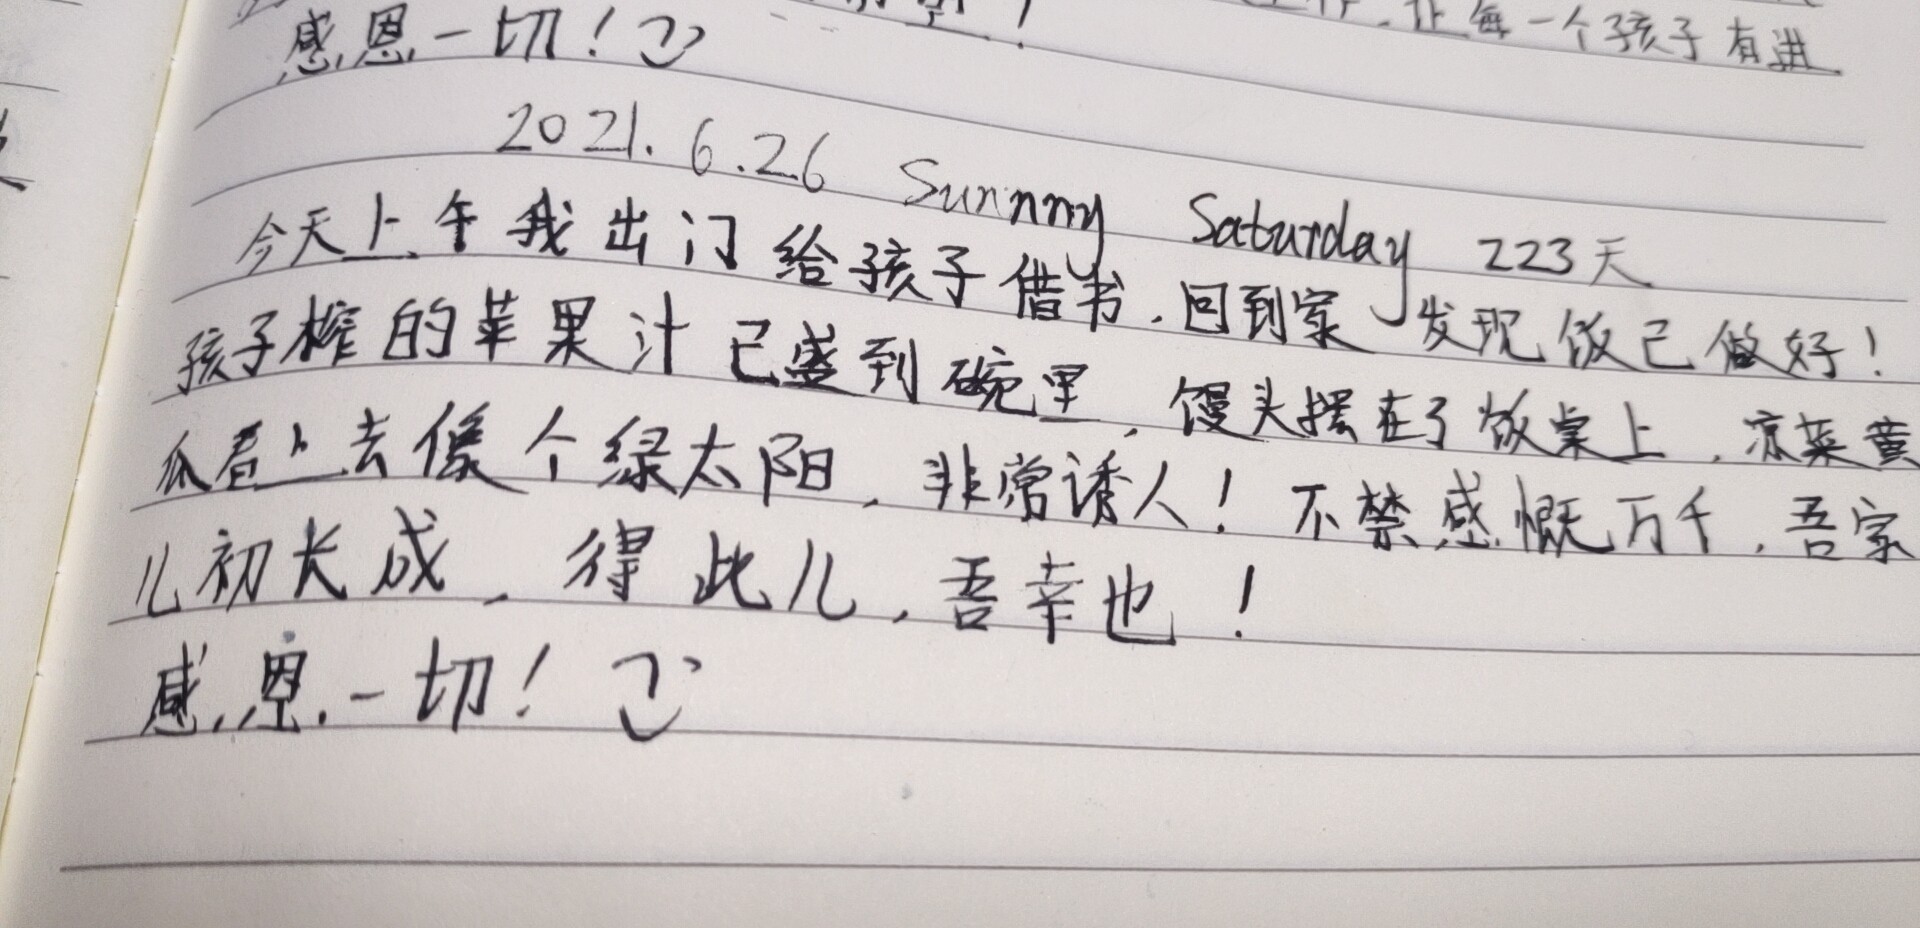 让每一个孩子有进
感恩一切！
2021.6.26 Sunnny Saturday 223天
今天上午我出门给孩子借书，回到家发现饭已做好！
孩子榨的苹果汁已盛到碗里，馒头摆在了饭桌上，凉菜黄
瓜看上去像个绿太阳，非常诱人！不禁感慨万千，吾家
儿初长成，得此儿，吾幸也！
感恩一切！